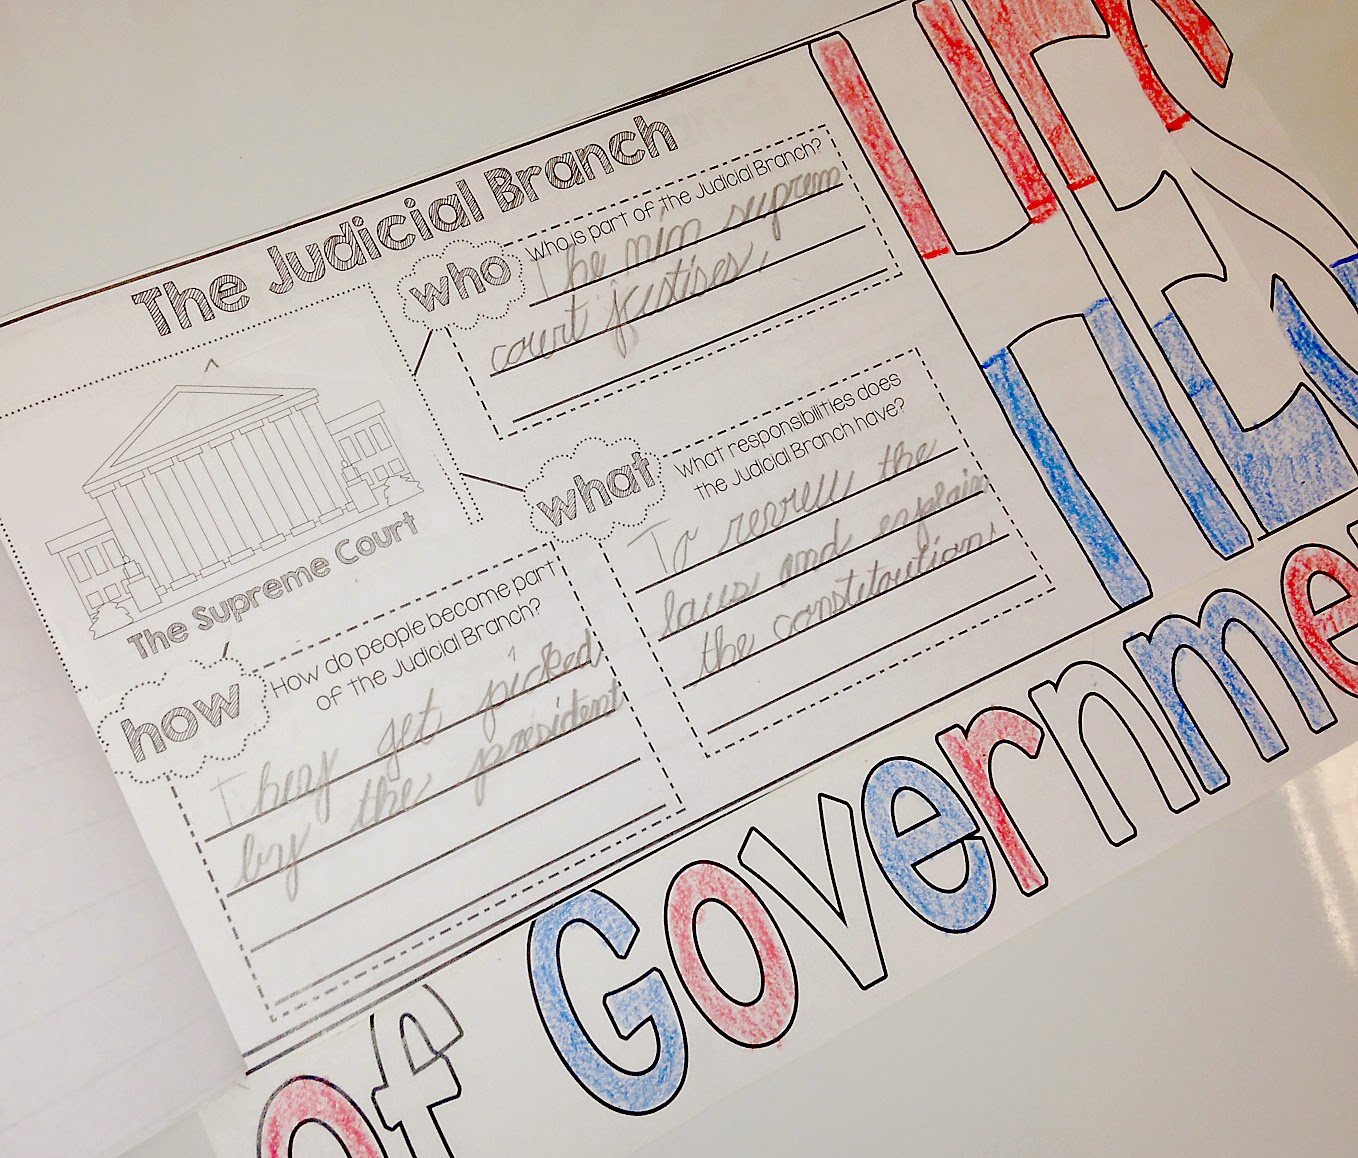 The Judicial Branch
who
Who is part of the Judicial Branch?
The suprem
court justises.
The Supreme Court
what
What responsibilities does
the Judicial Branch have?
To the
laws and explain
the
how
How do people become part
of the Judicial Branch?
They get picked
by the president
Of Governme